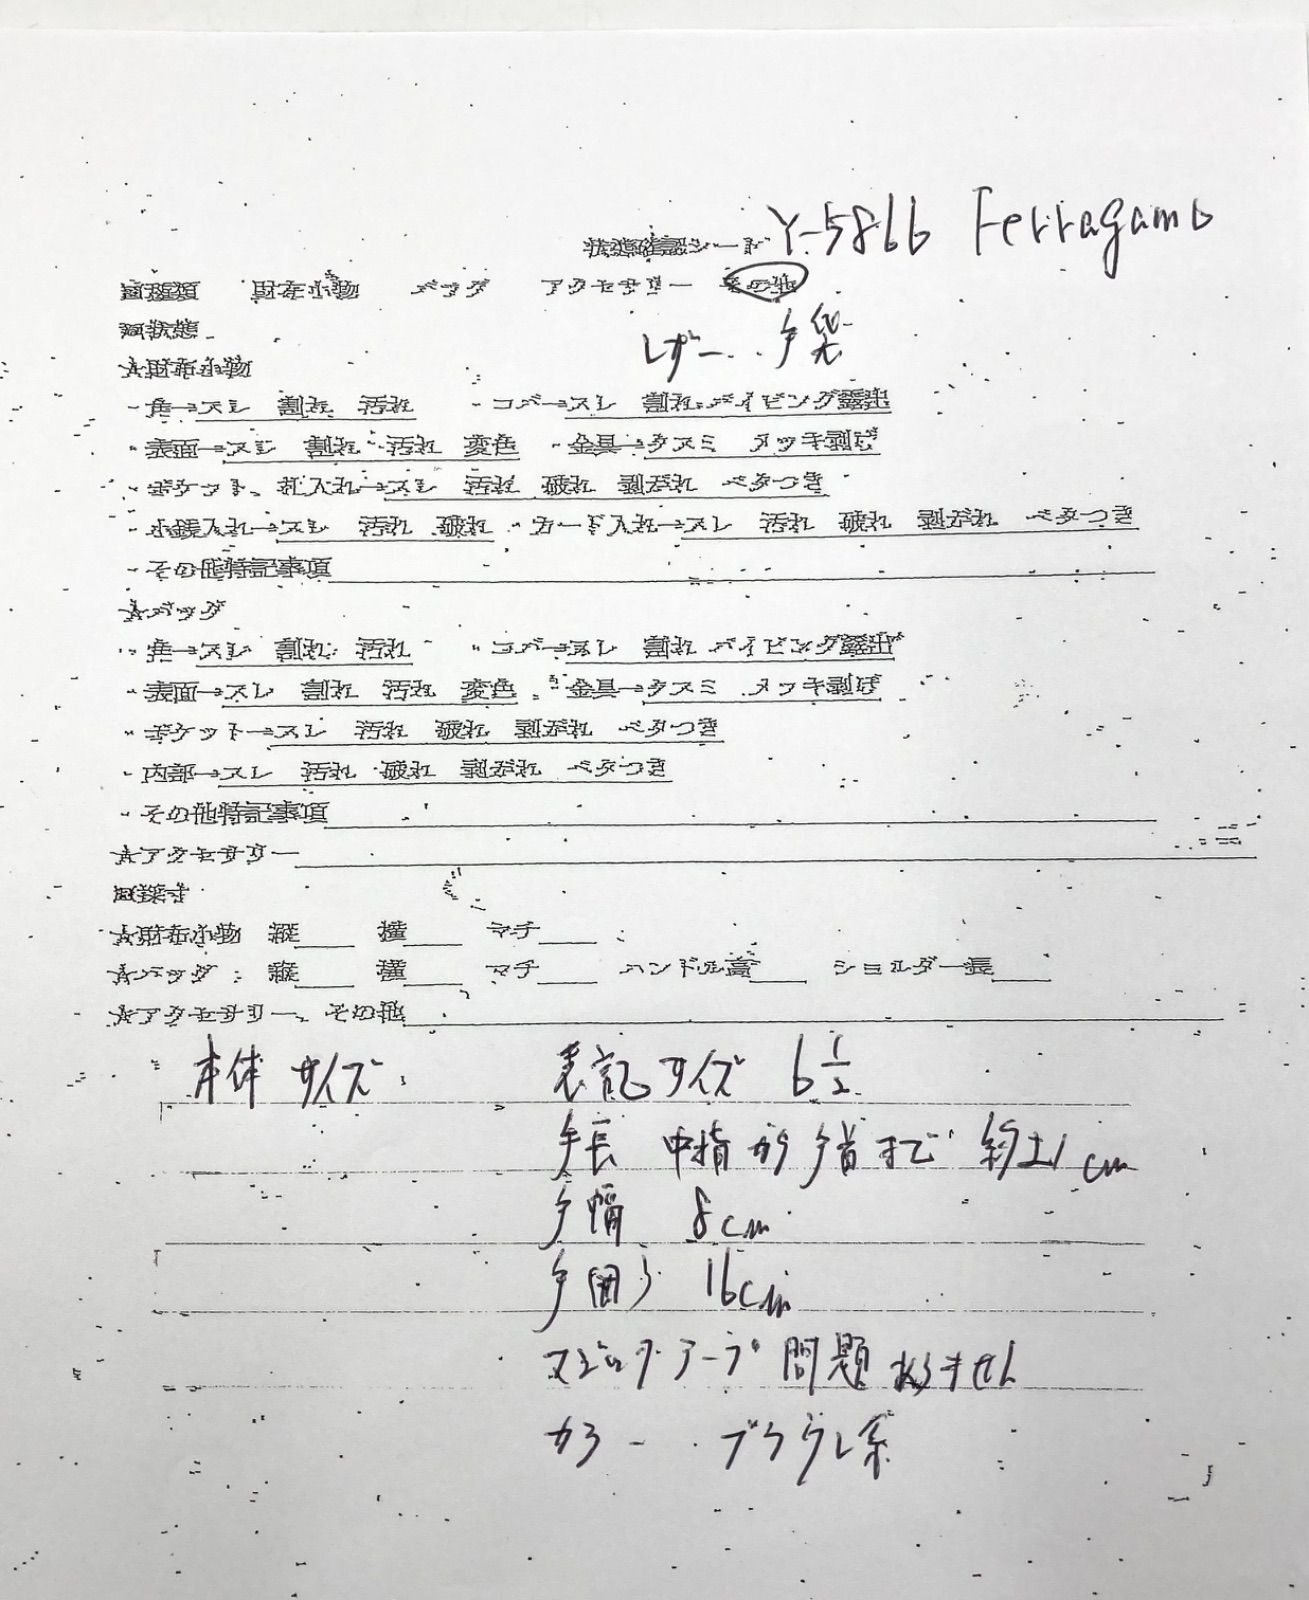 状態確認シート Y-5866 Ferragamo
財布小物 バッグ アクセサリー その他
レザー 手袋
状態
★財布小物
・角→スレ 割れ 汚れ ・コバ→スレ 割れ パイピング露出
・表面→スレ 割れ 汚れ 変色 ・金具→クスミ メッキ剥げ
・ポケット、札入れ→スレ 汚れ 破れ 剥がれ ベタつき
・小銭入れ→スレ 汚れ 破れ ・カード入れ→スレ 汚れ 破れ 剥がれ ベタつき
・その他特記事項
★バッグ
・角→スレ 割れ 汚れ ・コバ→スレ 割れ パイピング露出
・表面→スレ 割れ 汚れ 変色 ・金具→クスミ メッキ剥げ
・ポケット→スレ 汚れ 破れ 剥がれ ベタつき
・内部→スレ 汚れ 破れ 剥がれ ベタつき
・その他特記事項
★アクセサリー
採寸
★財布小物 縦 横 マチ
★バッグ 縦 横 マチ ハンドル高 ショルダー長
★アクセサリー、その他
本体サイズ 表記サイズ 6 1/2
手長 中指から手首まで 約21cm
手幅 8cm
手囲り 16cm
マジックテープ 問題ありません
カラー ブラウン系